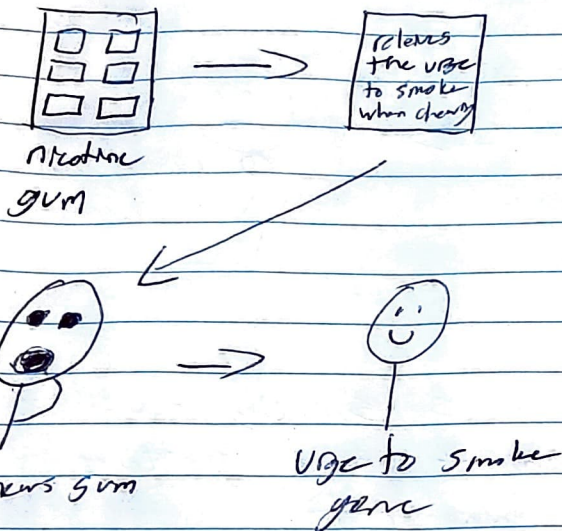 nicotine
gum
releves
the urge
to smoke
when chewing
gum
urge to smoke
gone